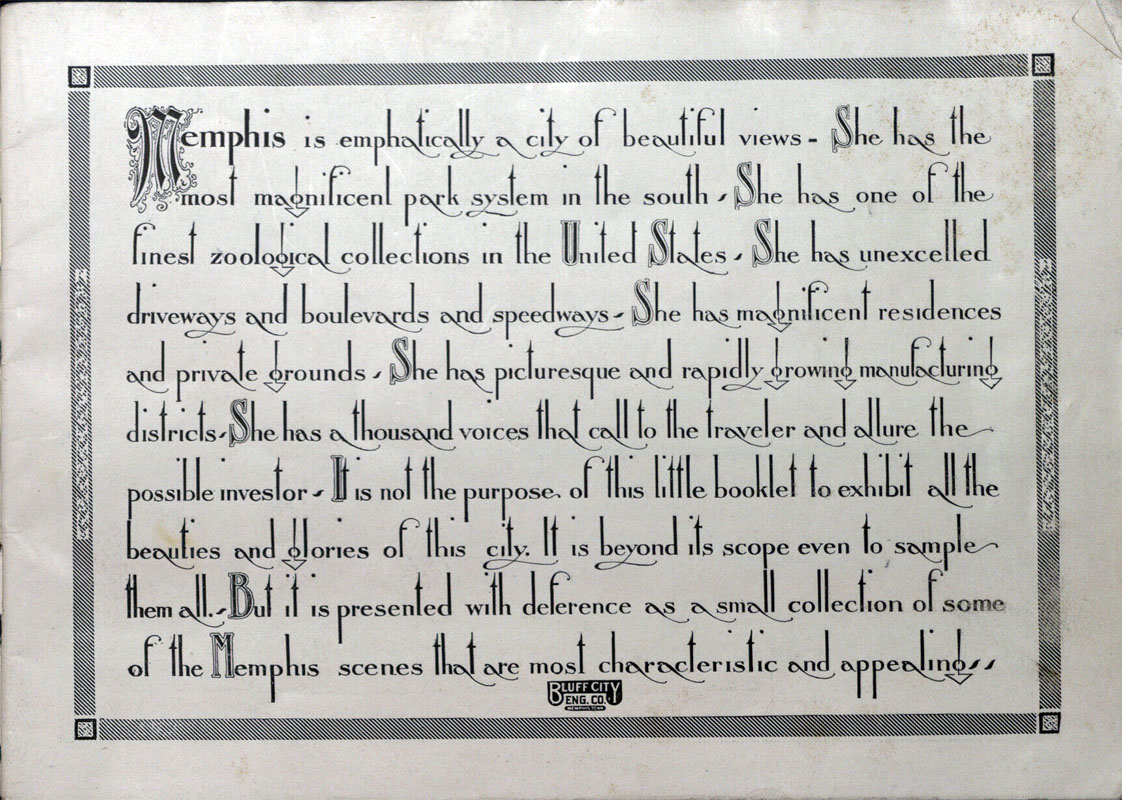 Memphis is emphatically a city of beautiful views - She has the
most magnificent park system in the south - She has one of the
finest zoological collections in the United States - She has unexcelled
driveways and boulevards and speedways - She has magnificent residences
and private grounds - She has picturesque and rapidly growing manufacturing
districts - She has a thousand voices that call to the traveler and allure the
possible investor - It is not the purpose of this little booklet to exhibit all the
beauties and glories of this city. It is beyond its scope even to sample
them all. - But it is presented with deference as a small collection of some
of the Memphis scenes that are most characteristic and appealing - -
BLUFF CITY
ENG. CO.
MEMPHIS, TENN.